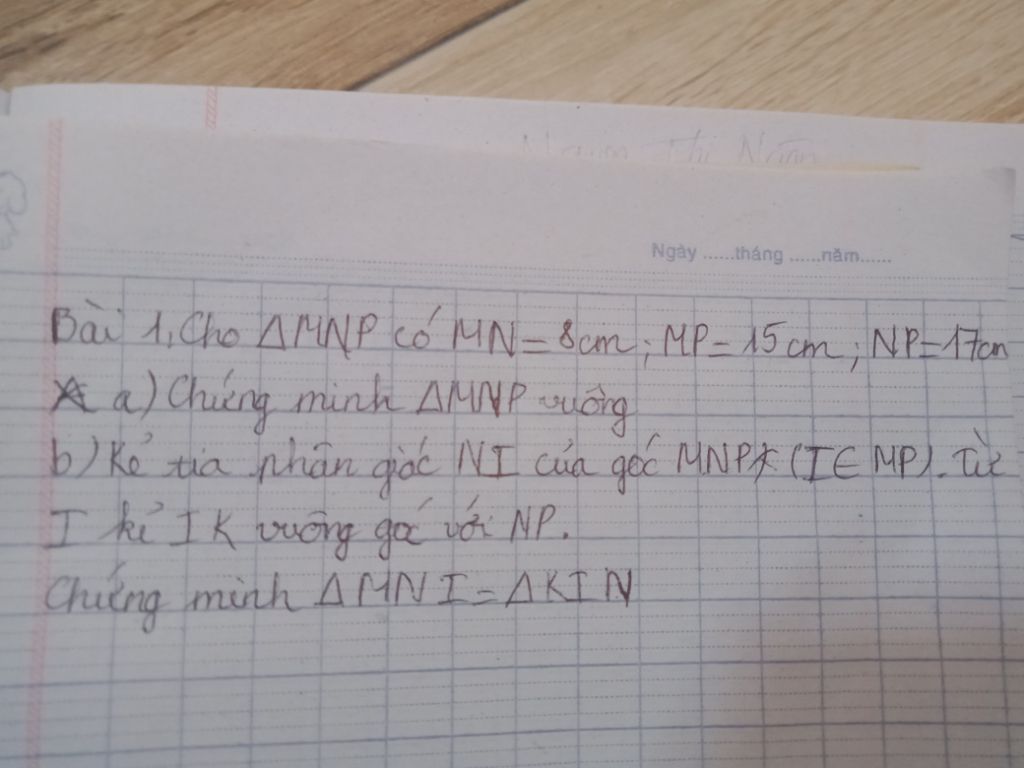 Ngày ......tháng ......năm......
Bài 1. Cho ΔMNP có MN = 8cm; MP = 15cm; NP = 17cm
a) Chứng minh ΔMNP vuông
b) Kẻ tia phân giác NI của góc MNP (I ∈ MP). Từ
I kẻ IK vuông góc với NP.
Chứng minh ΔMNI = ΔKIN